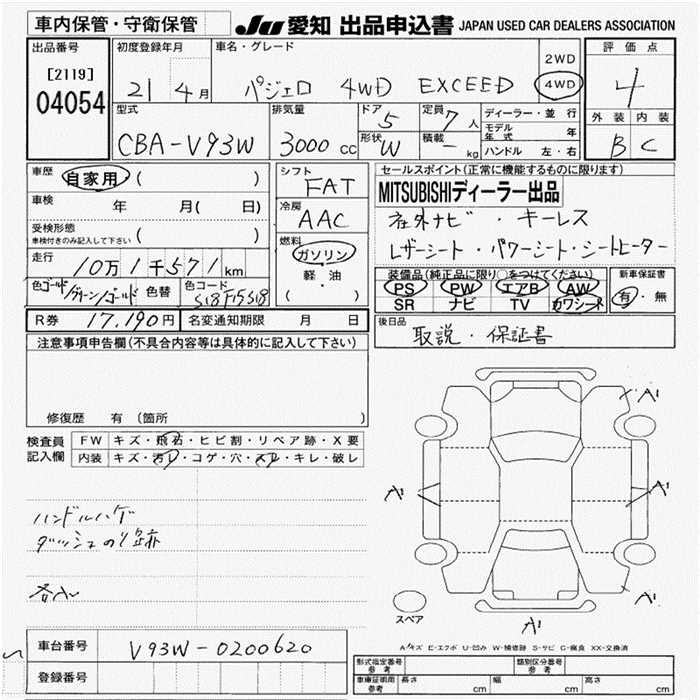 車内保管・守衛保管
JU 愛知 出品申込書 JAPAN USED CAR DEALERS ASSOCIATION
出品番号
[2119]
04054
初度登録年月
21年 4月
車名・グレード
パジェロ 4WD EXCEED
2WD
4WD
評価点
4
外装 内装
B C
型式
CBA-V93W
排気量
3000 cc
ドア
5
形状
W
定員
7人
積載
- kg
ディーラー・並行
モデル年式 年
ハンドル 左・右
車歴 自家用 ( )
車検 年 月(日)
受検形態
車検付きのみ記入して下さい ( )
走行
10万1千571km
色 ゴールド/グリーン/ゴールド 色替 色コード S18F15S18
シフト
FAT
冷房
AAC
燃料
ガソリン
軽・油
( )
セールスポイント(正常に機能するものに限ります)
MITSUBISHIディーラー出品
社外ナビ・キーレス
レザーシート・パワーシート・シートヒーター
装備品(純正品に限り○をつけてください)
PS PW エアB AW
SR ナビ TV カワシート
新車保証書
有・無
R券 17,190円 名変通知期限 月 日
後日品
取説・保証書
注意事項申告欄(不具合内容等は具体的に記入して下さい)
修復歴 有(箇所 )
検査員記入欄
FW キズ・飛石・ヒビ割・リペア跡・X要
内装 キズ・汚レ・コゲ・穴・スレ・キレ・破レ
ハンドルハゲ
ダッシュのり跡
A1
A1
A1
A1
A1
スペア
A キズ E-エクボ U-凹み W-補修跡 S-サビ C-腐食 XX-交換済
車台番号 V93W-0200620
登録番号
形式指定番号 参考
類別区分番号 参考
車庫証明用 参考 長さ cm 幅 cm 高さ cm